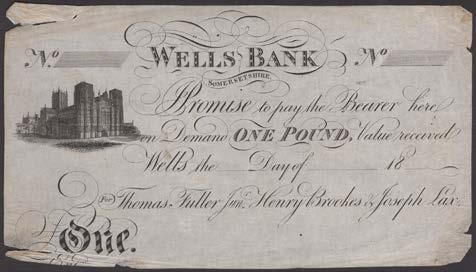 No WELLS BANK No
SOMERSETSHIRE.
Promise to pay the Bearer here
on Demand ONE POUND, Value received
Wells the Day of 18
For Thomas Fuller Junr. Henry Brookes & Joseph Lax.
One.